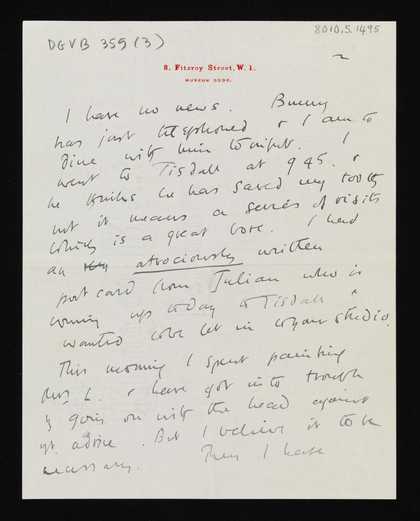 DGVB 359 (3)
8010.5.1495
8, Fitzroy Street, W. 1.
MUSEUM
2
I have no news. Bunny
has just telephoned & I am to
dine with him tonight. I
went to Tisdall at 9 45. &
he thinks he has saved my tooth
but it means a series of visits
which is a great bore. I had
an atrociously written
post card from Julian who is
coming up today to Tisdall &
wanted to be let in to your studio.
This morning I spent painting
Mrs L. & have got into trouble
by going on with the head against
yr. advice. But I believe it to be
necessary. Then I have